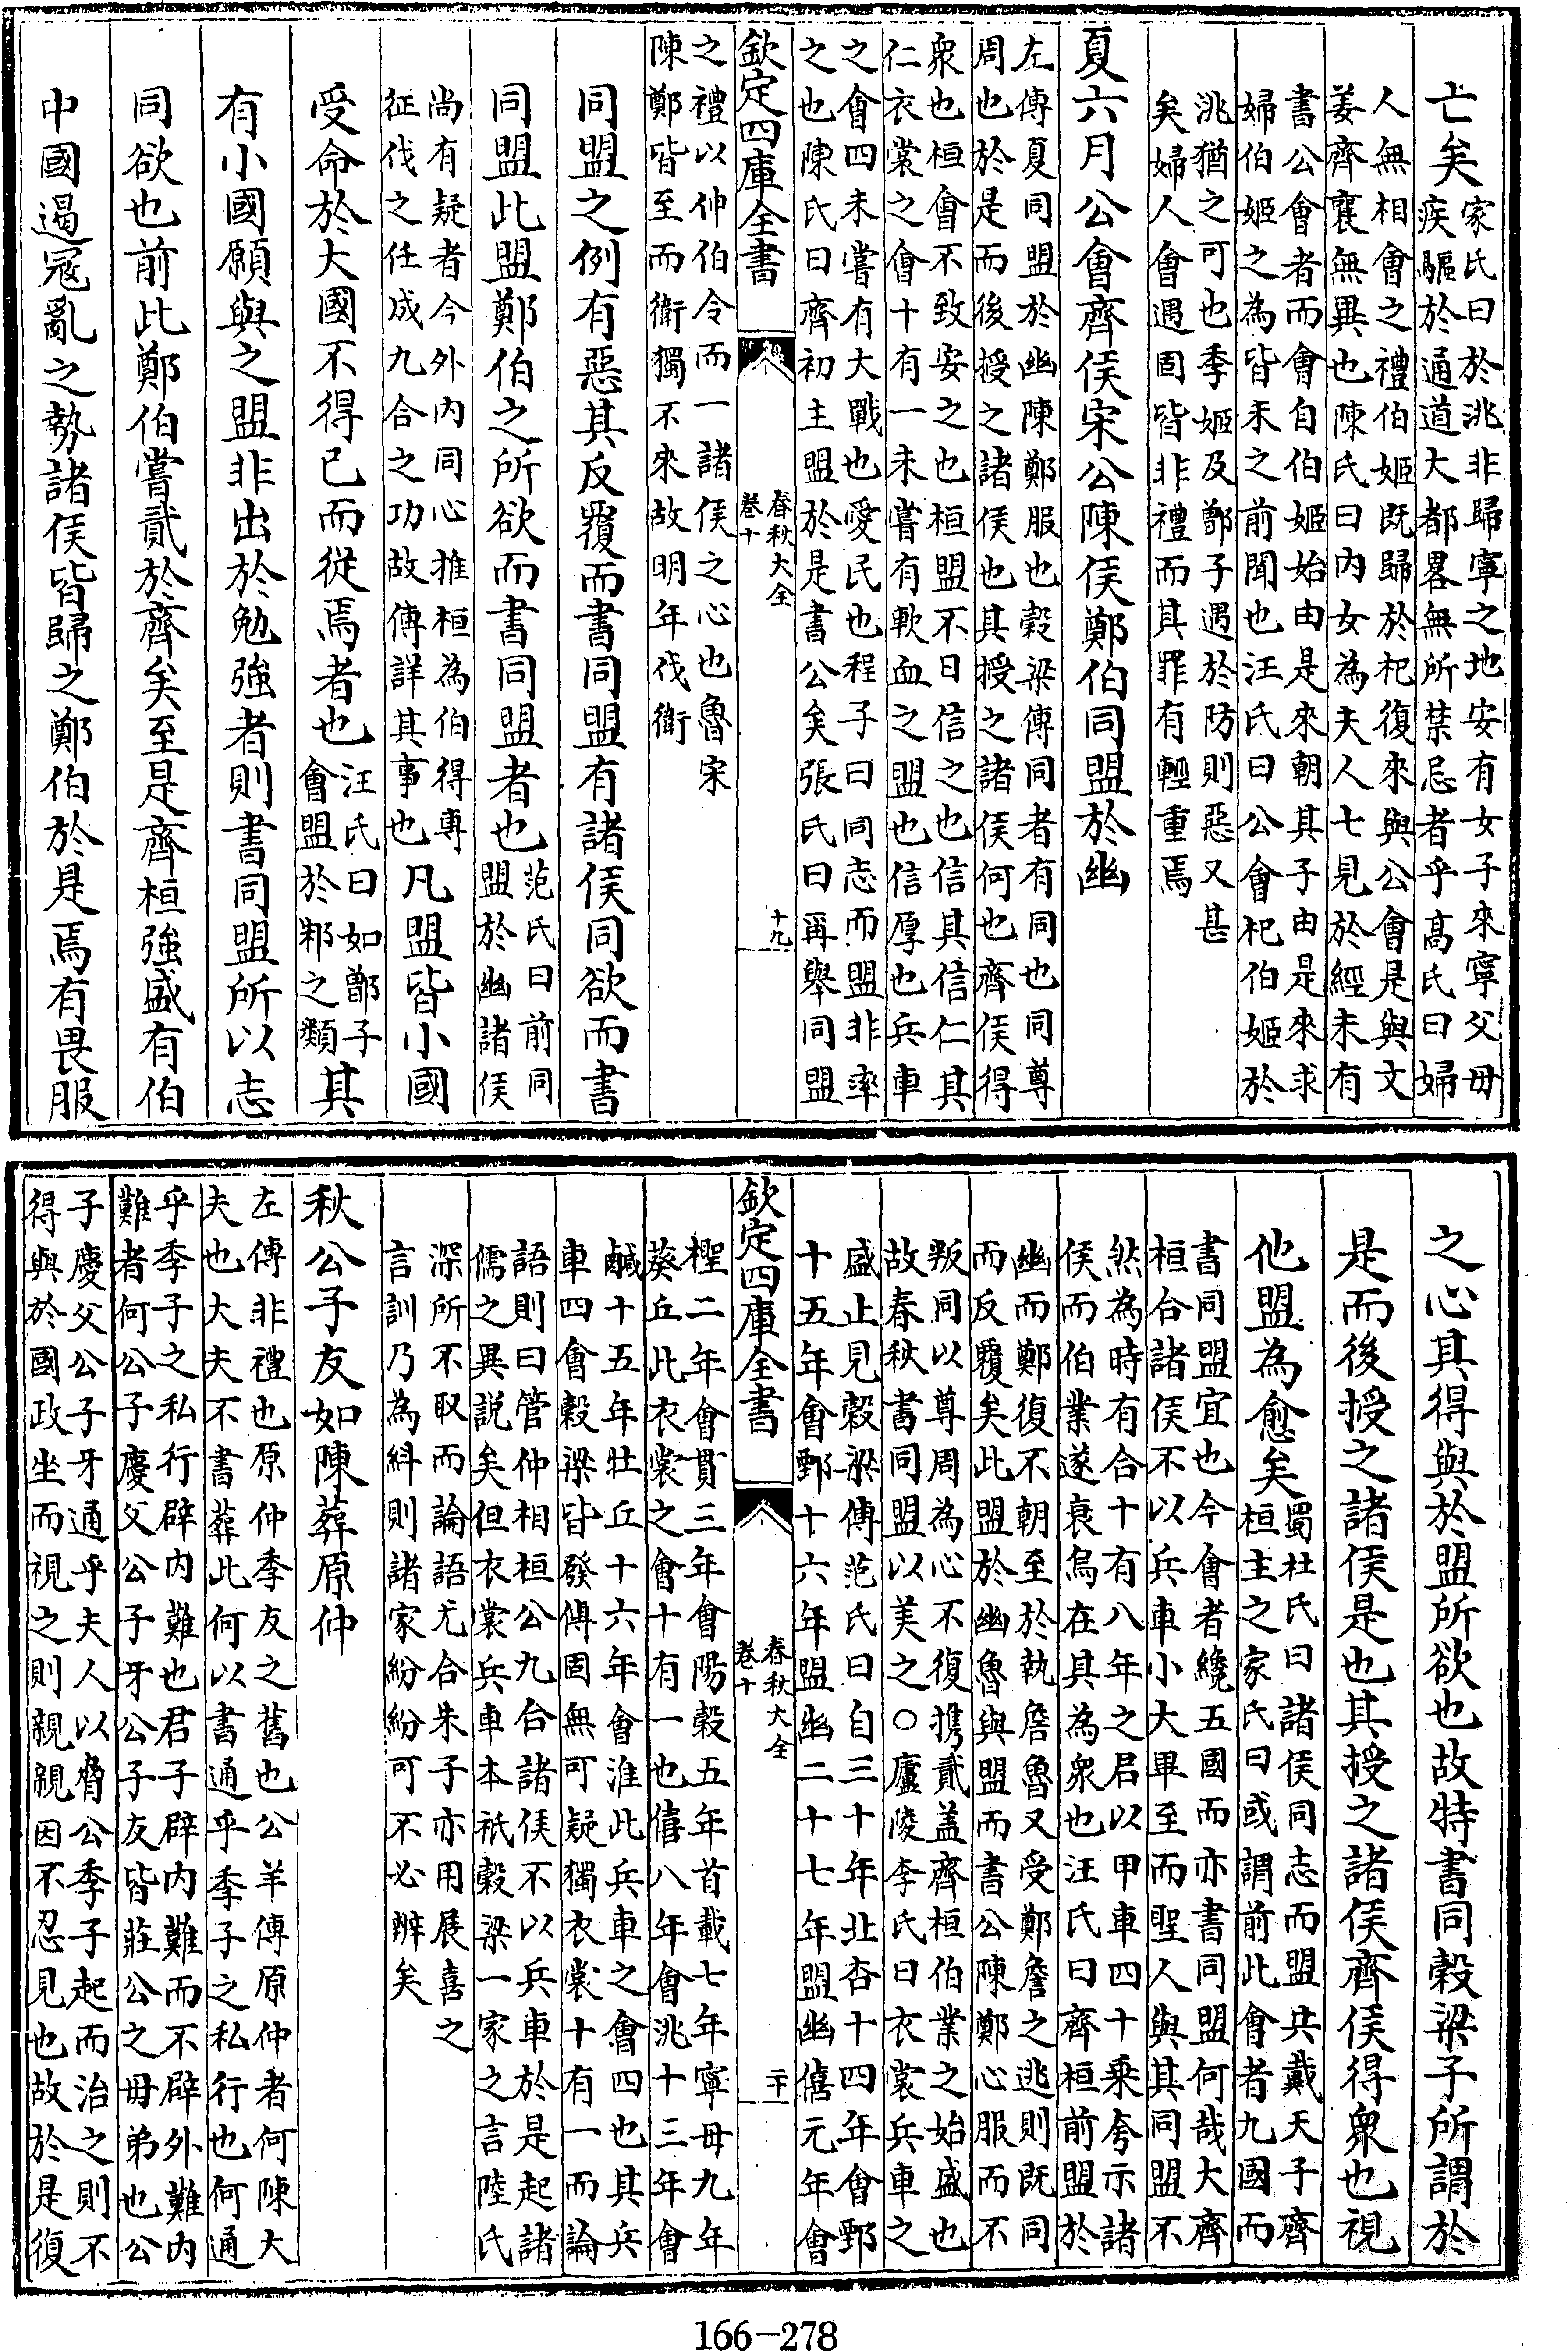 亡矣家氏曰於洮非歸寧之地安有女子來寧父母
疾驅於通道大都畧無所禁忌者乎髙氏曰婦
人無相會之禮伯姬既歸於杞復來與公會是與文
姜齊襄無異也陳氏曰内女為夫人七見於經未有
書公會者而會自伯姬始由是來朝其子由是來求
婦伯姬之為皆未之前聞也汪氏曰公會杞伯姬於
洮猶之可也季姬及鄫子遇於防則惡又甚
矣婦人會遇固皆非禮而其罪有輕重焉
夏六月公會齊侯宋公陳侯鄭伯同盟於幽
左傳夏同盟於幽陳鄭服也穀梁傳同者有同也同尊
周也於是而後授之諸侯也其授之諸侯何也齊侯得
衆也桓會不致安之也桓盟不日信之也信其信仁其
仁衣裳之會十有一未嘗有歃血之盟也信厚也兵車
之會四未嘗有大戰也愛民也程子曰同志而盟非率
之也陳氏曰齊初主盟於是書公矣張氏曰再舉同盟
欽定四庫全書
春秋大全
卷十
十九
之禮以仲伯令而一諸侯之心也魯宋
陳鄭皆至而衛獨不來故明年伐衛
同盟之例有惡其反覆而書同盟有諸侯同欲而書
同盟此盟鄭伯之所欲而書同盟者也范氏曰前同
盟於幽諸侯
尚有疑者今外内同心推桓為伯得專
征伐之任成九合之功故傳詳其事也凡盟皆小國
受命於大國不得已而從焉者也汪氏曰如鄫子
會盟於邾之類其
有小國願與之盟非出於勉強者則書同盟所以志
同欲也前此鄭伯嘗貳於齊矣至是齊桓強盛有伯
中國遏冦亂之勢諸侯皆歸之鄭伯於是焉有畏服
之心其得與於盟所欲也故特書同榖梁子所謂於
是而後授之諸侯是也其授之諸侯齊侯得衆也視
他盟為愈矣蜀杜氏曰諸侯同志而盟共戴天子齊
桓主之家氏曰或謂前此會者九國而
書同盟宜也今會者纔五國而亦書同盟何哉大齊
桓合諸侯不以兵車小大畢至而聖人與其同盟不
然為時有合十有八年之君以甲車四十乗夸示諸
侯而伯業遂衰烏在其為衆也汪氏曰齊桓前盟於
幽而鄭復不朝至於執詹魯又受鄭詹之逃則既同
而反覆矣此盟於幽魯與盟而書公陳鄭心服而不
叛同以尊周為心不復攜貳盖齊桓伯業之始盛也
故春秋書同盟以美之○廬陵李氏曰衣裳兵車之
盛止見穀梁傳范氏曰自三十年北杏十四年會鄄
十五年會鄄十六年盟幽二十七年盟幽僖元年會
欽定四庫全書
春秋大全
卷十
二十
檉二年會貫三年會陽穀五年首載七年寧毋九年
葵丘此衣裳之會十有一也僖八年會洮十三年會
鹹十五年牡丘十六年會淮此兵車之會四也其兵
車四會穀梁皆發傳固無可疑獨衣裳十有一而論
語則曰管仲相桓公九合諸侯不以兵車於是起諸
儒之異説矣但衣裳兵車本祇穀梁一家之言陸氏
深所不取而論語尤合朱子亦用展喜之
言訓乃為糾則諸家紛紛可不必辨矣
秋公子友如陳葬原仲
左傳非禮也原仲季友之舊也公羊傳原仲者何陳大
夫也大夫不書葬此何以書通乎季子之私行也何通
乎季子之私行辟内難也君子辟内難而不辟外難内
難者何公子慶父公子牙公子友皆莊公之毋弟也公
子慶父公子牙通乎夫人以脅公季子起而治之則不
得與於國政坐而視之則親親因不忍見也故於是復
166-278